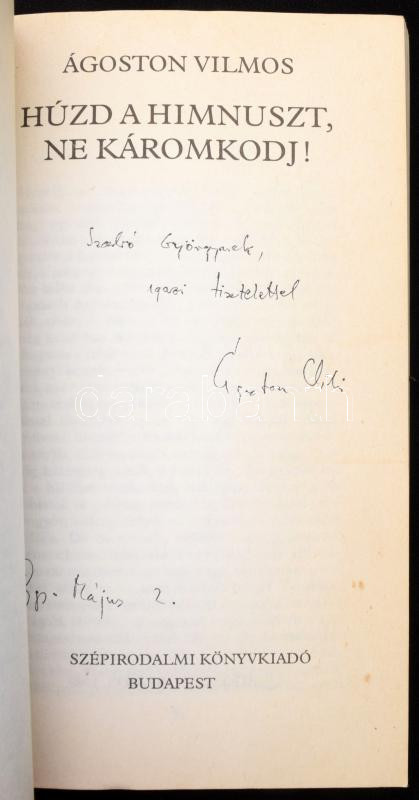 ÁGOSTON VILMOS
HÚZD A HIMNUSZT,
NE KÁROMKODJ!
Szabó Györgynek,
igazi tisztelettel
Ágoston Vili
darabanth
Bp. Május 2.
SZÉPIRODALMI KÖNYVKIADÓ
BUDAPEST